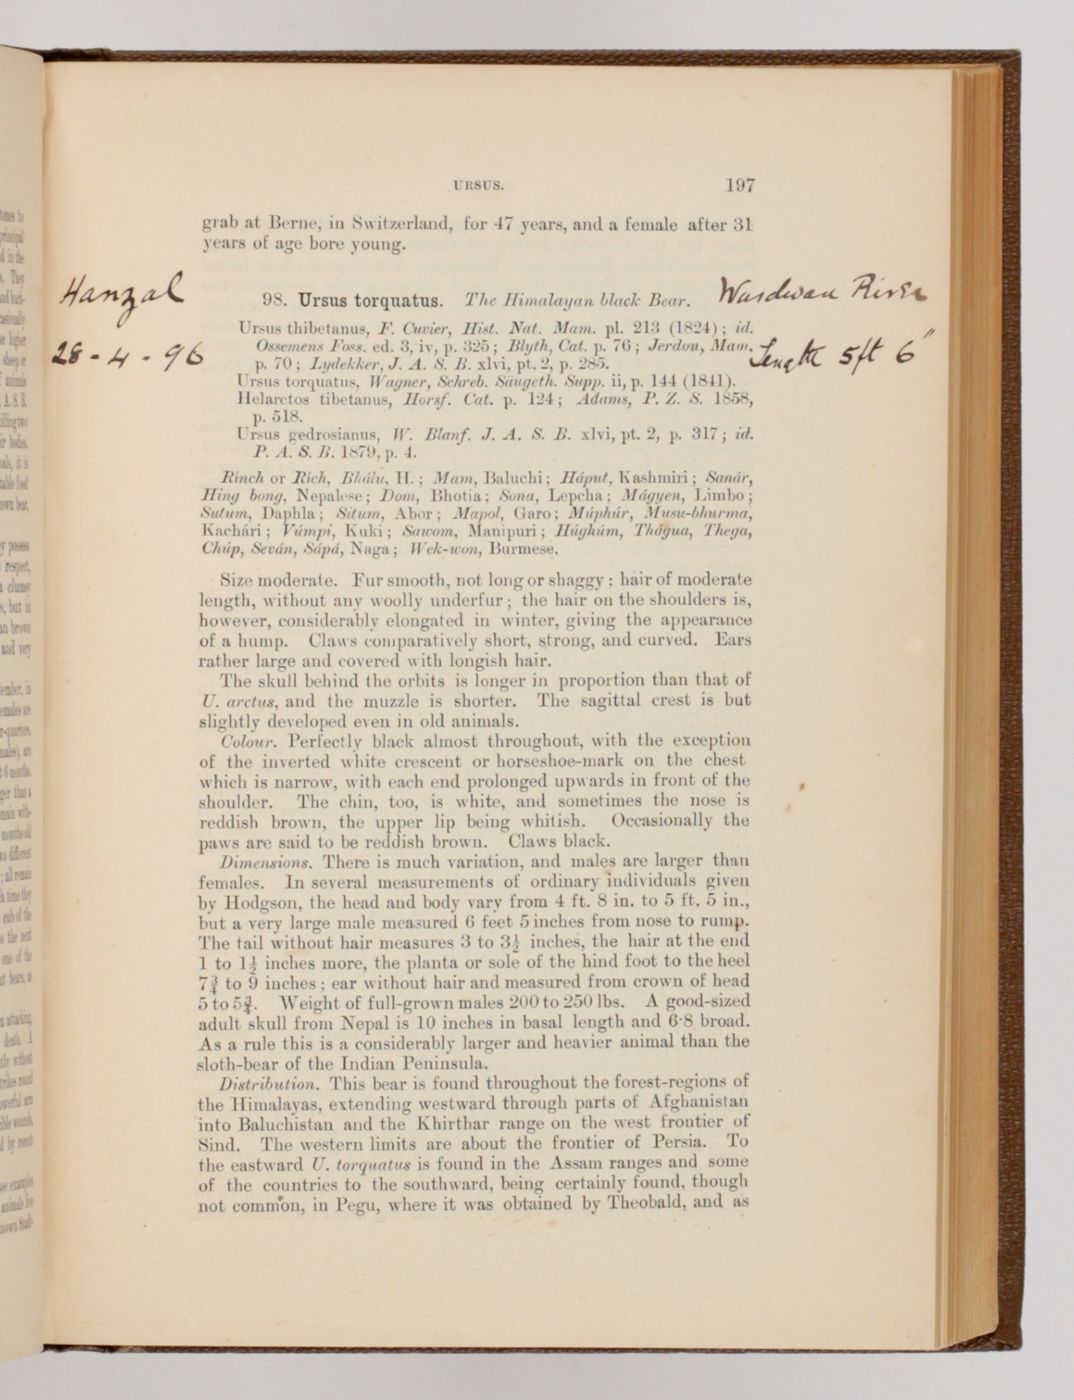 URSUS. 197
grab at Berne, in Switzerland, for 47 years, and a female after 31
years of age bore young.
Hanzal
28-4-96
98. Ursus torquatus. The Himalayan black Bear.
Wardwan River
Length 5ft 6"
Ursus thibetanus, F. Cuvier, Hist. Nat. Mam. pl. 213 (1824); id.
Ossemens Foss. ed. 3, iv, p. 325; Blyth, Cat. p. 76; Jerdon, Mam.
p. 70; Lydekker, J. A. S. B. xlvi, pt. 2, p. 285.
Ursus torquatus, Wagner, Schreb. Säugeth. Supp. ii, p. 144 (1841).
Helarctos tibetanus, Horsf. Cat. p. 124; Adams, P. Z. S. 1858,
p. 518.
Ursus gedrosianus, W. Blanf. J. A. S. B. xlvi, pt. 2, p. 317; id.
P. A. S. B. 1879, p. 4.
Rinch or Rích, Bhálu, H.; Mam, Baluchi; Háput, Kashmiri; Sanár,
Hing bong, Nepalese; Dom, Bhotia; Sona, Lepcha; Mágyen, Limbo;
Sutum, Daphla; Situm, Abor; Mapol, Garo; Múphúr, Musu-bhurma,
Kachári; Vúmpi, Kuki; Sawom, Manipuri; Húghúm, Thágua, Thega,
Chúp, Seván, Sápá, Naga; Wek-won, Burmese.
Size moderate. Fur smooth, not long or shaggy; hair of moderate
length, without any woolly underfur; the hair on the shoulders is,
however, considerably elongated in winter, giving the appearance
of a hump. Claws comparatively short, strong, and curved. Ears
rather large and covered with longish hair.
The skull behind the orbits is longer in proportion than that of
U. arctus, and the muzzle is shorter. The sagittal crest is but
slightly developed even in old animals.
Colour. Perfectly black almost throughout, with the exception
of the inverted white crescent or horseshoe-mark on the chest
which is narrow, with each end prolonged upwards in front of the
shoulder. The chin, too, is white, and sometimes the nose is
reddish brown, the upper lip being whitish. Occasionally the
paws are said to be reddish brown. Claws black.
Dimensions. There is much variation, and males are larger than
females. In several measurements of ordinary individuals given
by Hodgson, the head and body vary from 4 ft. 8 in. to 5 ft. 5 in.,
but a very large male measured 6 feet 5 inches from nose to rump.
The tail without hair measures 3 to 3½ inches, the hair at the end
1 to 1½ inches more, the planta or sole of the hind foot to the heel
7¾ to 9 inches; ear without hair and measured from crown of head
5 to 5¾. Weight of full-grown males 200 to 250 lbs. A good-sized
adult skull from Nepal is 10 inches in basal length and 6·8 broad.
As a rule this is a considerably larger and heavier animal than the
sloth-bear of the Indian Peninsula.
Distribution. This bear is found throughout the forest-regions of
the Himalayas, extending westward through parts of Afghanistan
into Baluchistan and the Khirthar range on the west frontier of
Sind. The western limits are about the frontier of Persia. To
the eastward U. torquatus is found in the Assam ranges and some
of the countries to the southward, being certainly found, though
not common, in Pegu, where it was obtained by Theobald, and as